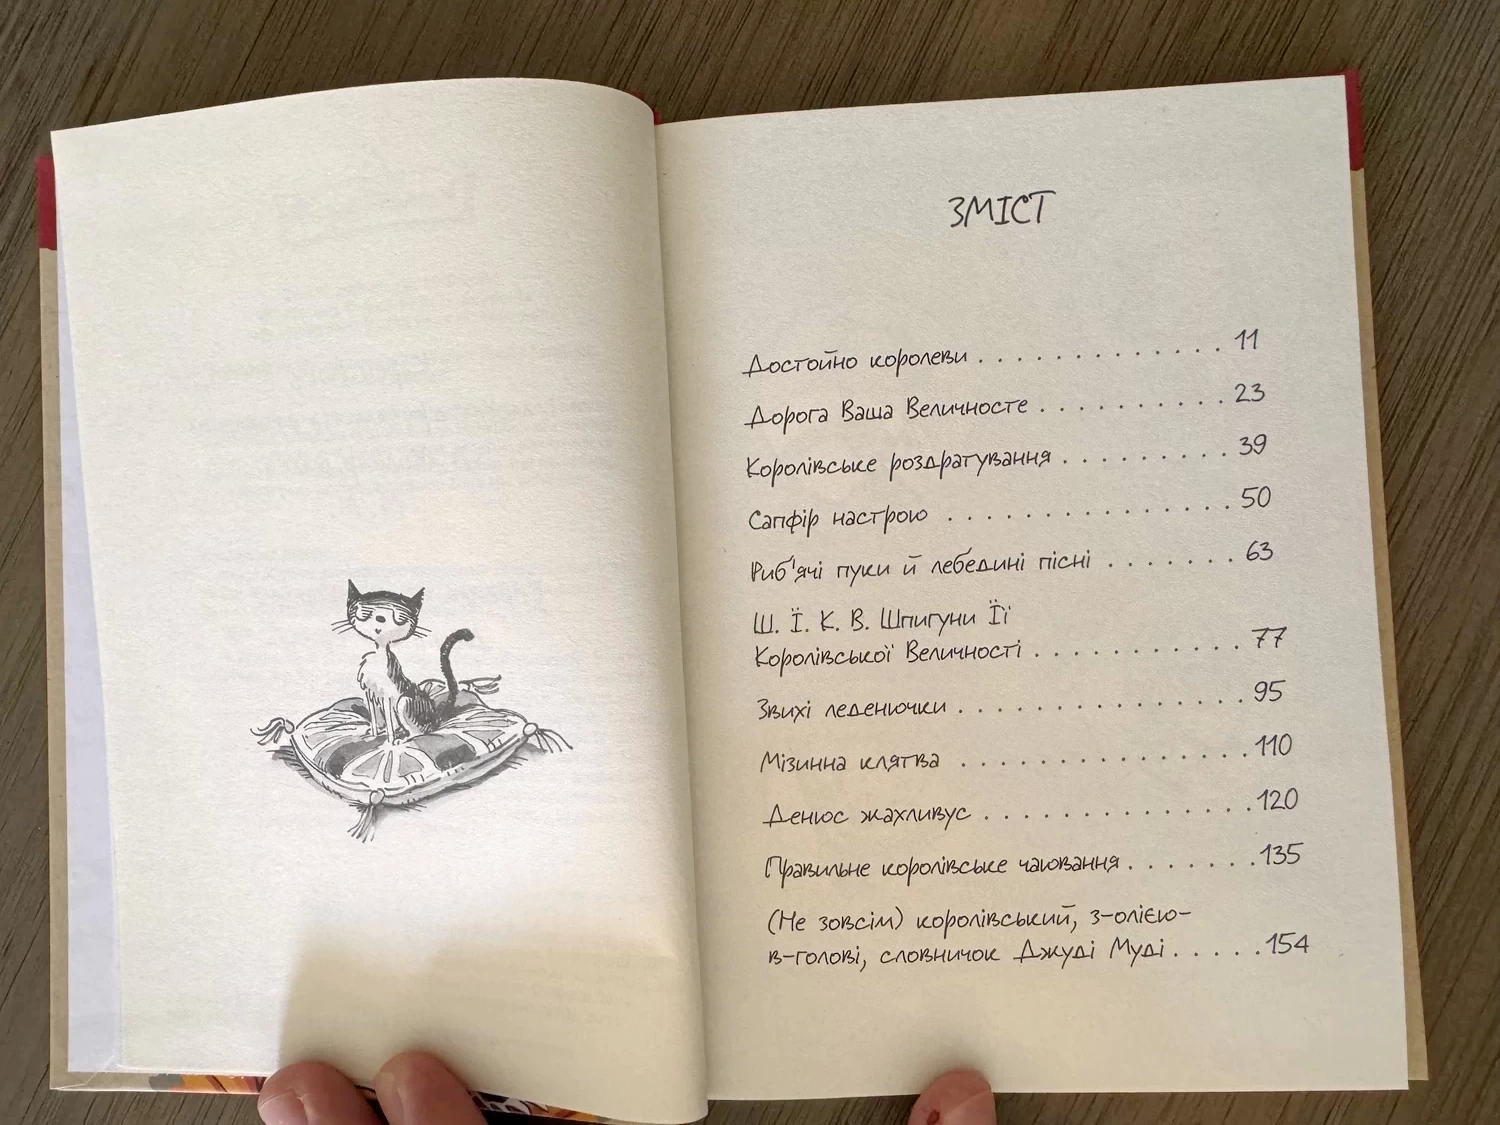 ЗМІСТ
Достойно королеви . . . . . . . . . . . . . 11
Дорога Ваша Величносте . . . . . . . . . . 23
Королівське роздратування . . . . . . . . . 39
Сапфір настрою . . . . . . . . . . . . . . . 50
Риб'ячі пуки й лебедині пісні . . . . . . . 63
Ш. Ї. К. В. Шпигуни Її
Королівської Величності . . . . . . . . . . . 77
Звихі леденючки . . . . . . . . . . . . . . . 95
Мізинна клятва . . . . . . . . . . . . . . . 110
Денюс жахливус . . . . . . . . . . . . . . 120
Правильне королівське чаювання . . . . . . . 135
(Не зовсім) королівський, з-олією-
в-голові, словничок Джуді Муді . . . . . 154